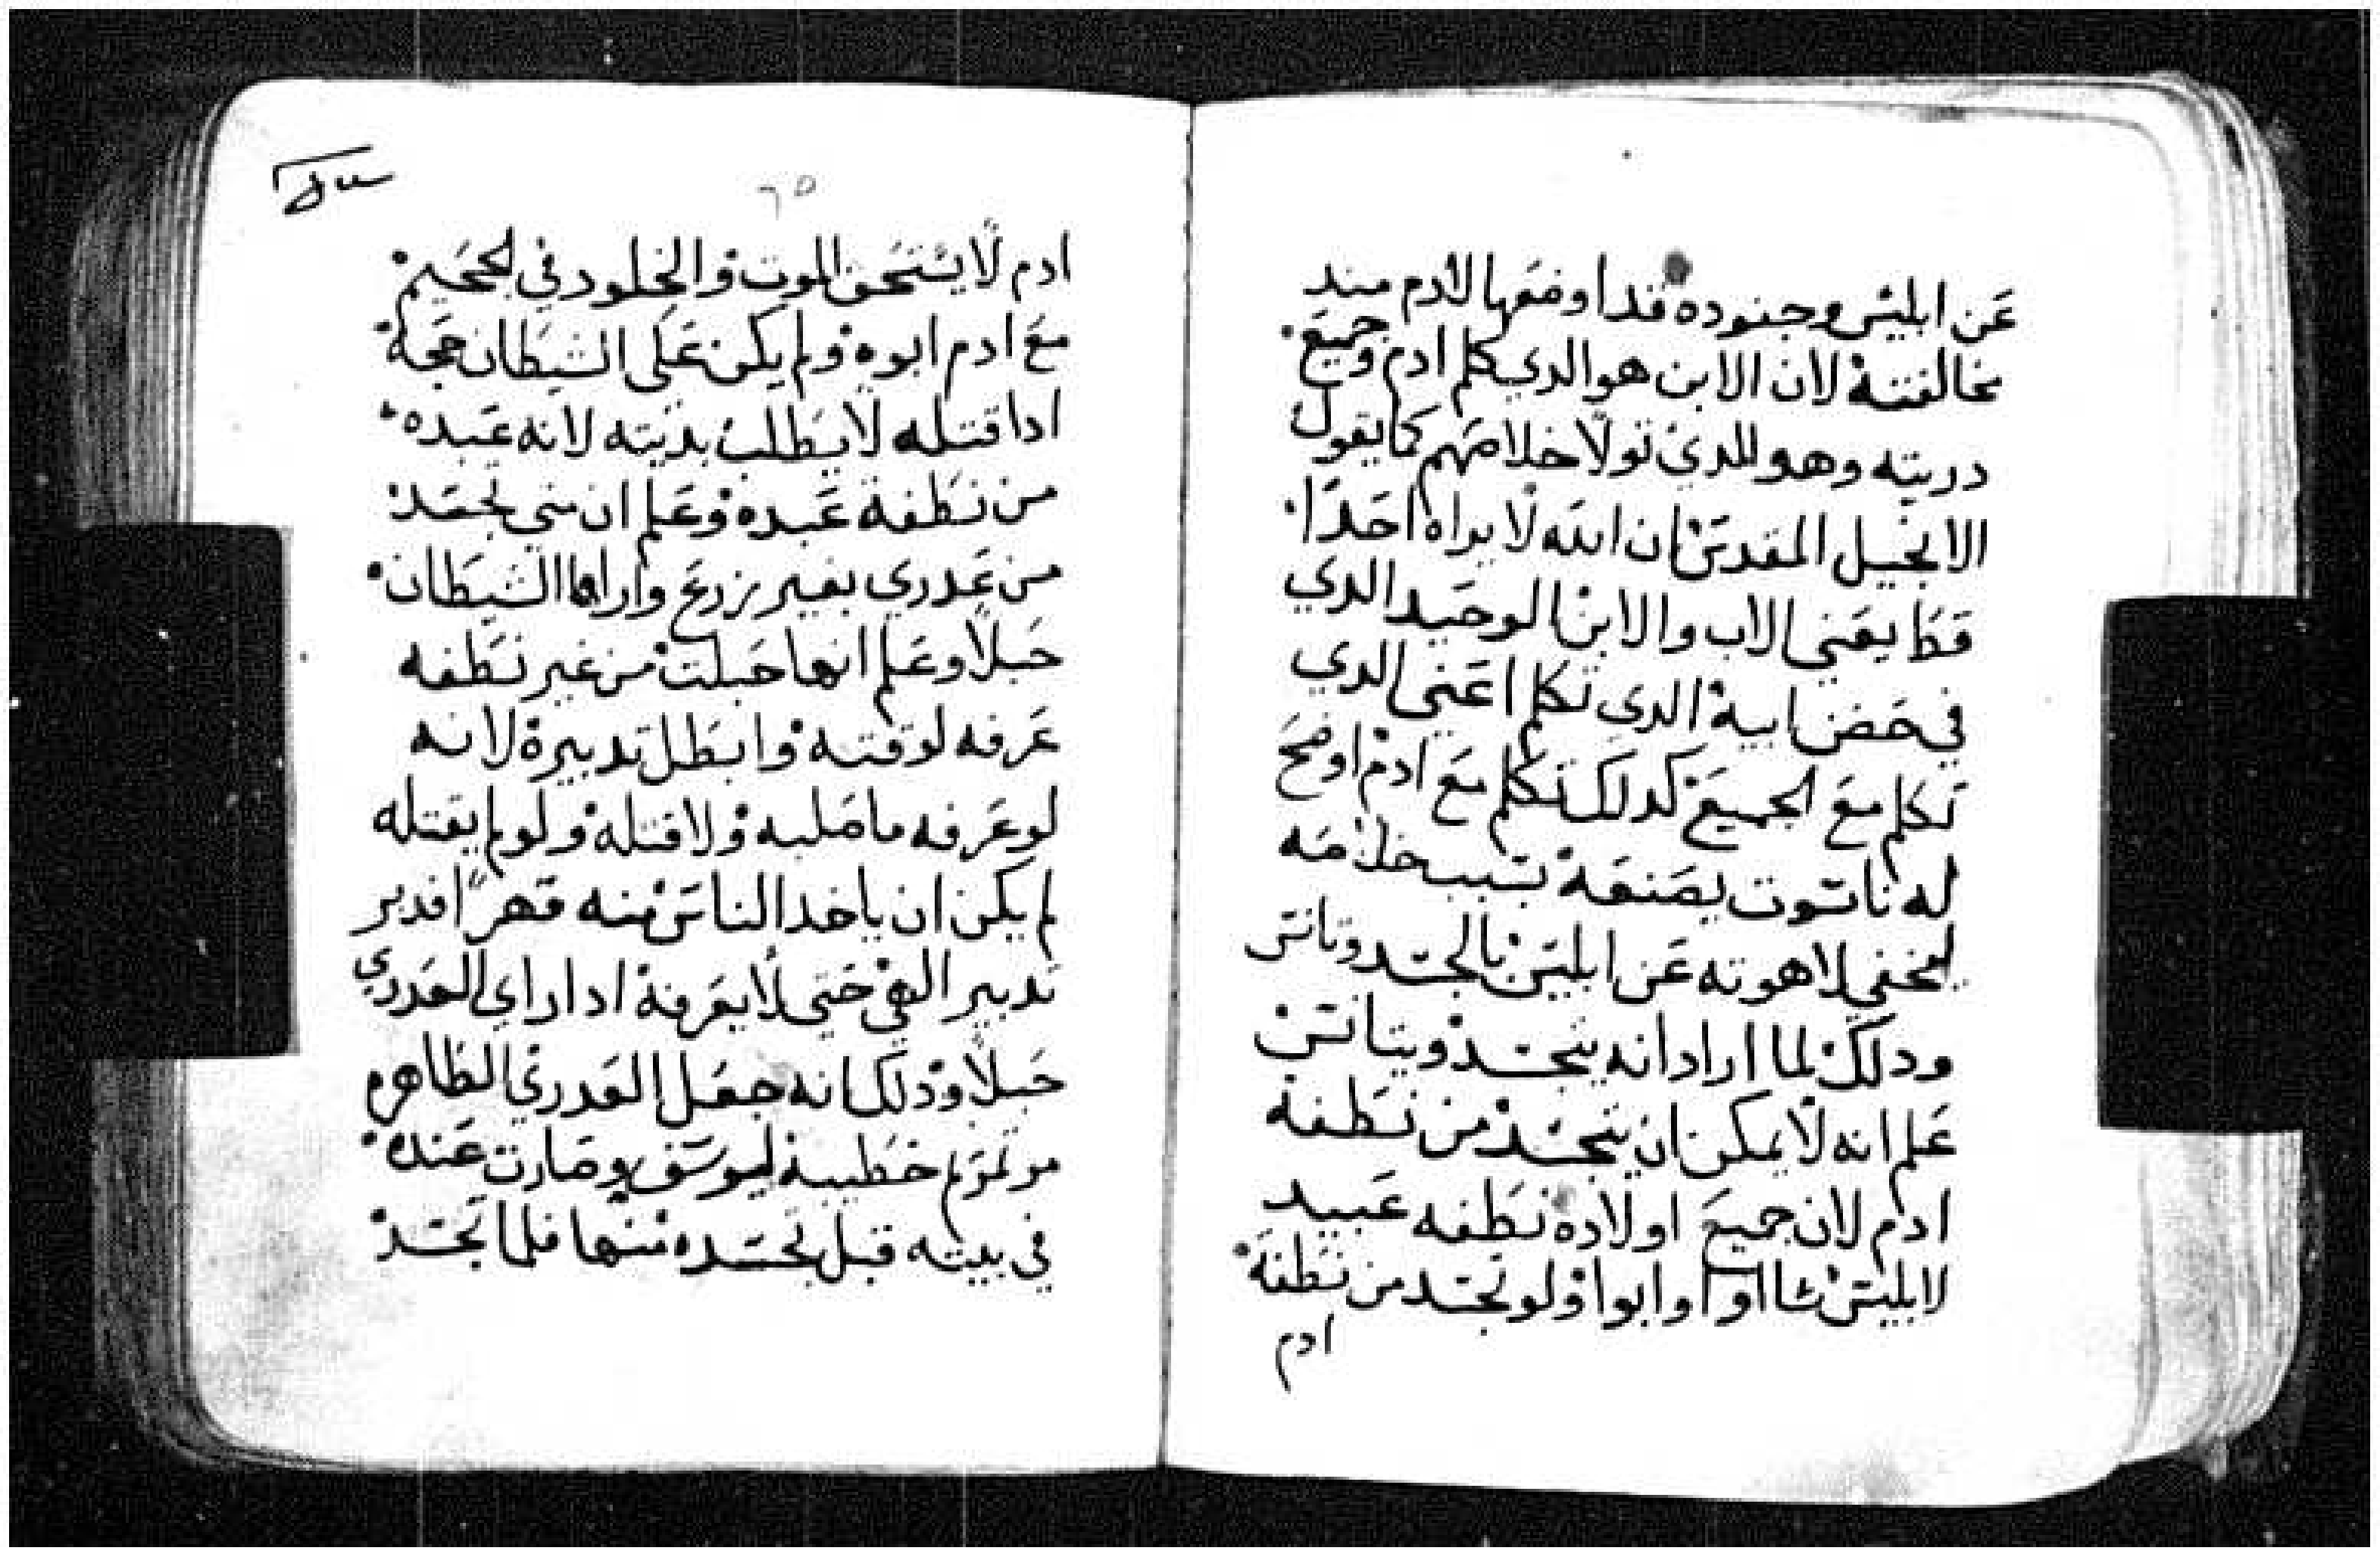 عن ابليس وجنوده قد اوضعها لادم مند
مخالفته لان الابن هو الدي كلم ادم وجميع
دريته وهو الدي تولا خلاصهم كما يقول
الانجيل المقدس ان الله لا يراه احدا
قط يعني الاب والابن الوحيد الدي
في حضن ابيه الدي تكلم اعني الدي
تكلم مع الجميع كدلك تكلم مع ادم اوضح
له ناسوت يصنعه بسبب خلاصه
ليخفي لاهوته عن ابليس بالجسد وتانس
ودلك لما اراد انه يتجسد ويتانس
علم انه لا يمكن ان يتجسد من نطفة
ادم لان جميع اولاده نطفه عبيد
لابليس شااو او ابوا ولو تجسد من نطفة
ادم
٦٥
ادم لا يستحق الموت والخلود في الجحيم
مع ادم ابوه ولم يكن على الشيطان حجة
ادا قتله لا يطلب بديته لانه عبده
من نطفة عبده وعلم ان متي تجسد
من عدري بغير زرع واراها الشيطان
حبلا وعلم انها حبلت من غير نطفه
عرفه لوقته وابطل تدبيره لانه
لو عرفه ما صلبه ولا قتله ولو لم يقتله
لم يكن ان ياخد الناس منه قهرا فدبر
تدبير الهي حتى لا يعرفه ادا راي العدري
حبلا ودلك انه جعل العدري الطاهره
مرتمريم خطيبة ليوسف وصارت عنده
في بيته قبل تجسده منها فلما تجسد